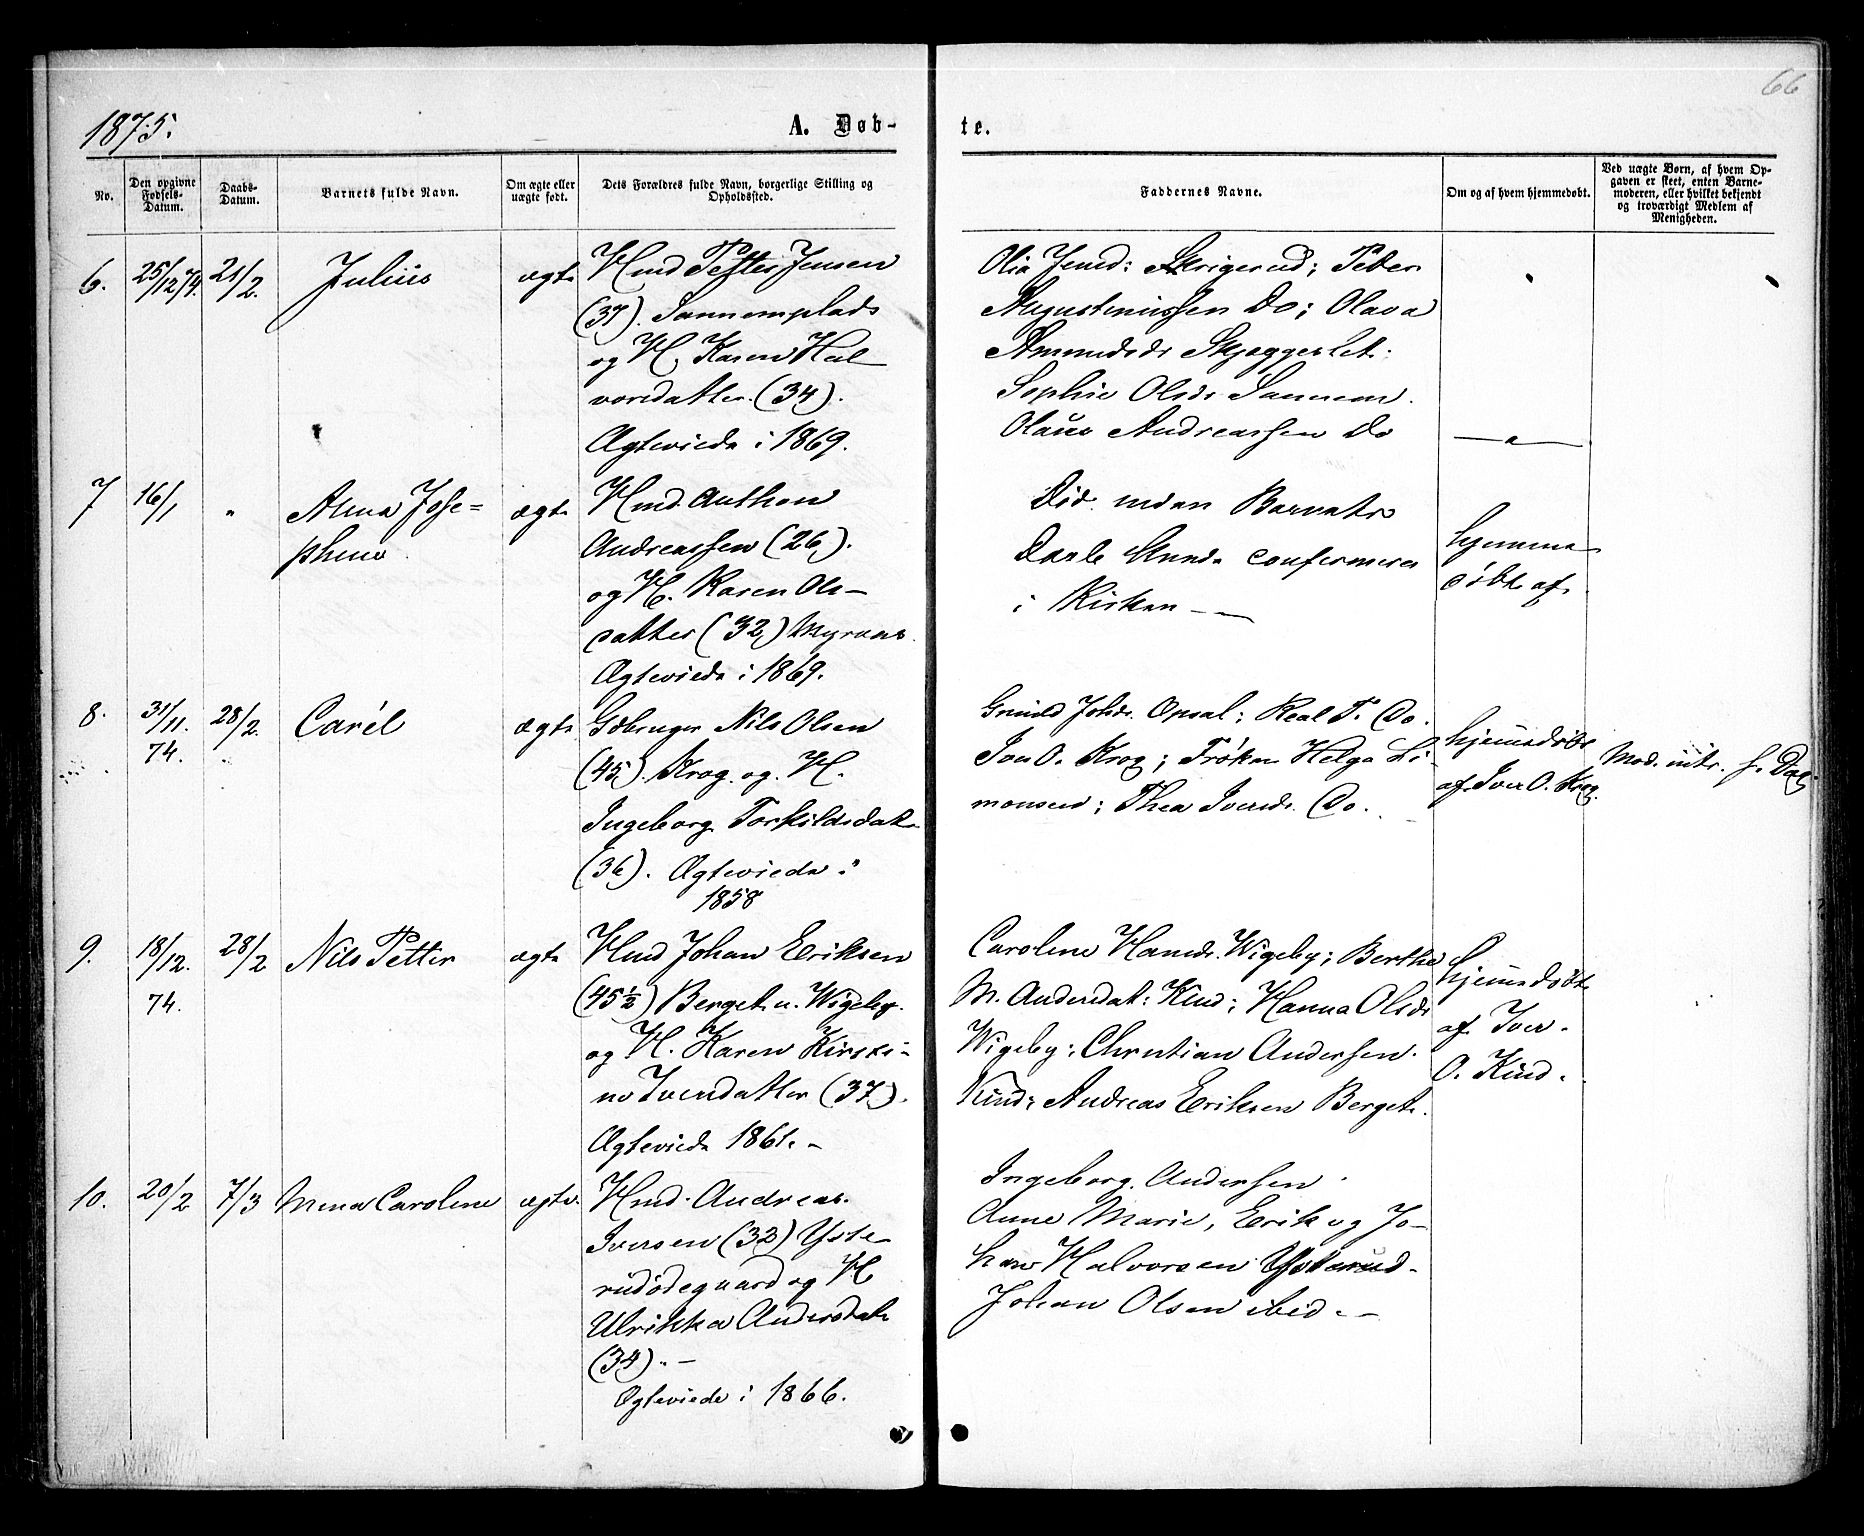 66
1875.
A. Døb-
te.
No.
Den opgivne Fødsels-Datum.
Daabs-Datum.
Barnets fulde Navn.
Om ægte eller uægte født.
Dets Forældres fulde Navn, borgerlige Stilling og Opholdssted.
Faddernes Navne.
Om og af hvem hjemmedøbt.
Ved uægte Børn, af hvem Op-
gaven er skeet, enten Barne-
moderen, eller hvilket bekjendt
og troværdigt Medlem af
Menigheden.
6. 25/12 74. 21/2. Julius ægte
Hmd Petter Jensen
(37). Sannemplads
og H. Karen Hal-
vorsdatter. (34).
Ægteviede i 1869.
Olia Jensd: Skrigerud; Peter
Augustinussen Do; Olava
Amundsdr Skjeggerlet:
Sophie Olsdr Sannem.
Olaus Andreassen Do
7 16/1 " Alma Jose=
phine ægte
Hmd. Anthon
Andreassen (26).
og H. Karen Ols-
datter (32)
Ægteviede i 1869.
Død inden Barnets
Daab kunde confirmeres
i Kirken -
hjemme
døbt af
8. 31/11. 74. 28/2. Carél ægte
Gdbruger Nils Olsen
(45). Krog. og. H.
Ingeborg Torkildsdat
(36). Ægteviede i
1858
Johdr. Opsal; T. Do.
Iver O. Krog; Frøken Helga Si-
monsen; Thea Iversdr. Do.
hjemmedøbt
af Iver O. Krog.
9. 18/12. 74. 28/2 Nils Petter ægte
Hmd Johan Eriksen
(45½) Berget u. Wigeby.
og H. Karen Kirsti-
ne Iversdatter (37).
Ægteviede 1861. -
Carolene Hansdr. Wigeby; Berthe
M. Andersdat: Kind; Hanna Olsdr
Wigeby; Christian Andersen.
Kind; Andreas Eriksen Berget.
hjemmedøbt
af Iver
O. Kind.
10. 20/2 7/3 Mina Carolene ægte.
Hmd. Andreas
Iversen (32) Yste-
rudødegaard og H
Ulrikka Andersdat
(34). -
Ægteviede i 1866.
Ingeborg Andersen
Anne Marie, Erik og Jo-
han Halvorsen Ysterud.
Johan Olsen ibid. -